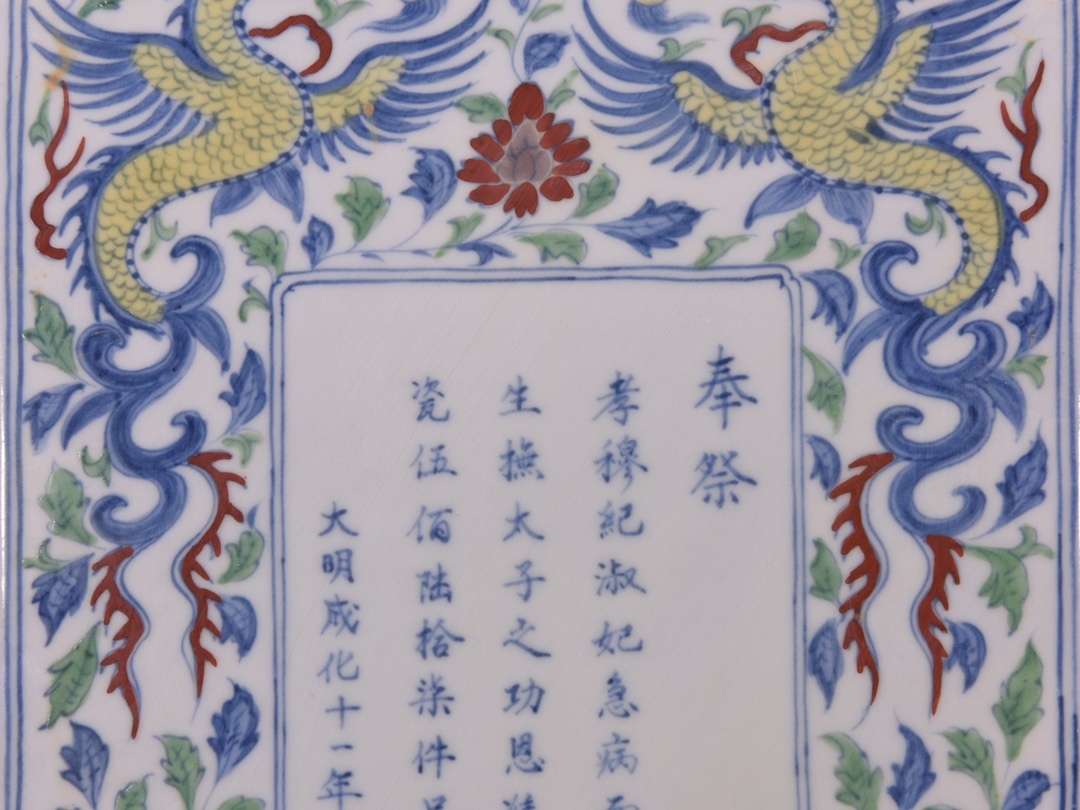 奉祭
孝穆紀淑妃急病
生撫太子之功恩
瓷伍佰陆拾柒件
大明成化十一年